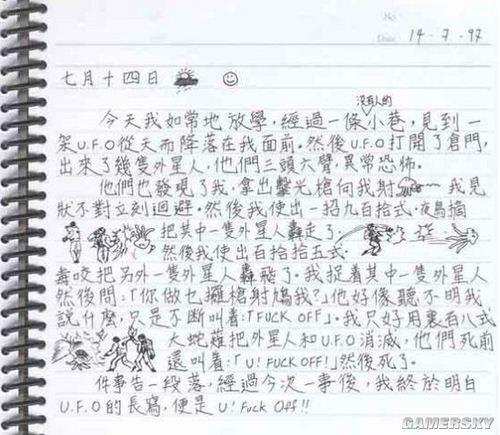 No.
Date 14-7-97
七月十四日
今天我如常地放學，經過一條沒有人的小巷，見到一
架U.F.O從天而降落在我面前。然後U.F.O打開了倉門，
出來了幾隻外星人，他們三頭六臂，異常恐怖。
他們也發現了我，拿出擊光槍向我射 我見
狀不對立刻迴避。然後我使出一招九百拾式．
把其中一隻外星人轟走了．
然後我使出百拾拾五式．
毒咬把另外一隻外星人轟飛了。我捉着其中一隻外星人
然後問：「你做乜攞槍射鳩我？」他好像聽不明我
說什麼，只是不斷叫着：「FUCK OFF」。我只好用裏百八式
大蛇薙把外星人和U.F.O消滅，他們死前
還叫着：「U! FUCK OFF!」然後死了。
件事告一段落，經過今次一事後，我終於明白
U.F.O的長寫，便是U! Fuck Off!!
GAMERSKY